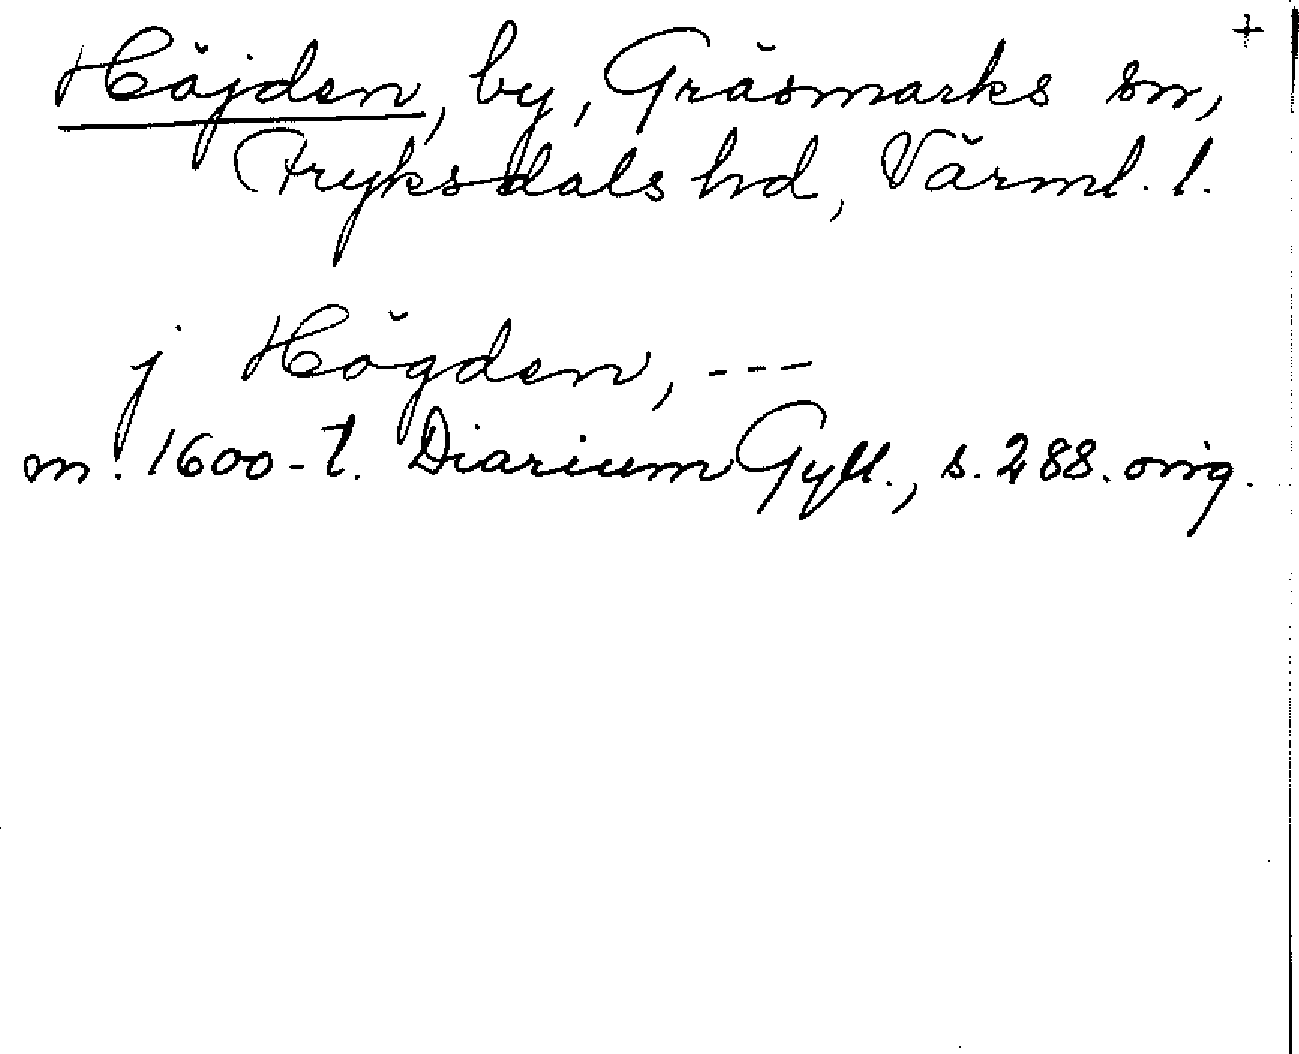 +
Höjden, by, Gräsmarks sn,
Fryksdals hd, Värml. l.
j Högden, ---
m. 1600-t. Diarium Gyll., s. 288. orig.